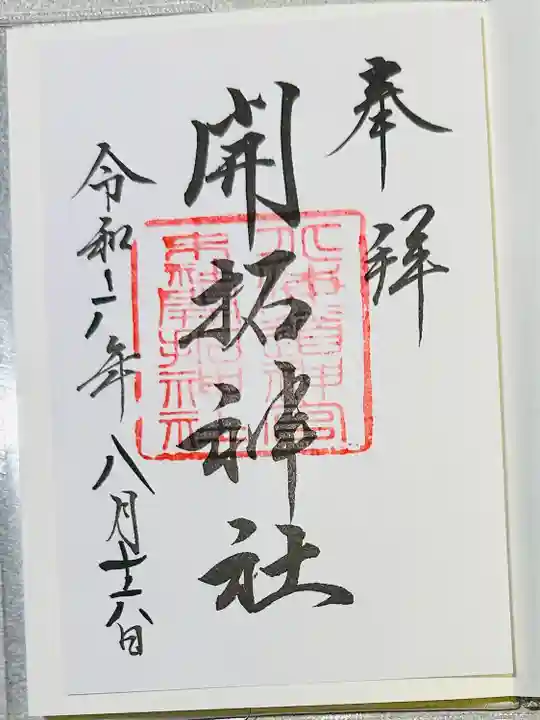 奉拝
開拓神社
北海道神宮
末社開拓神社
令和六年八月十六日